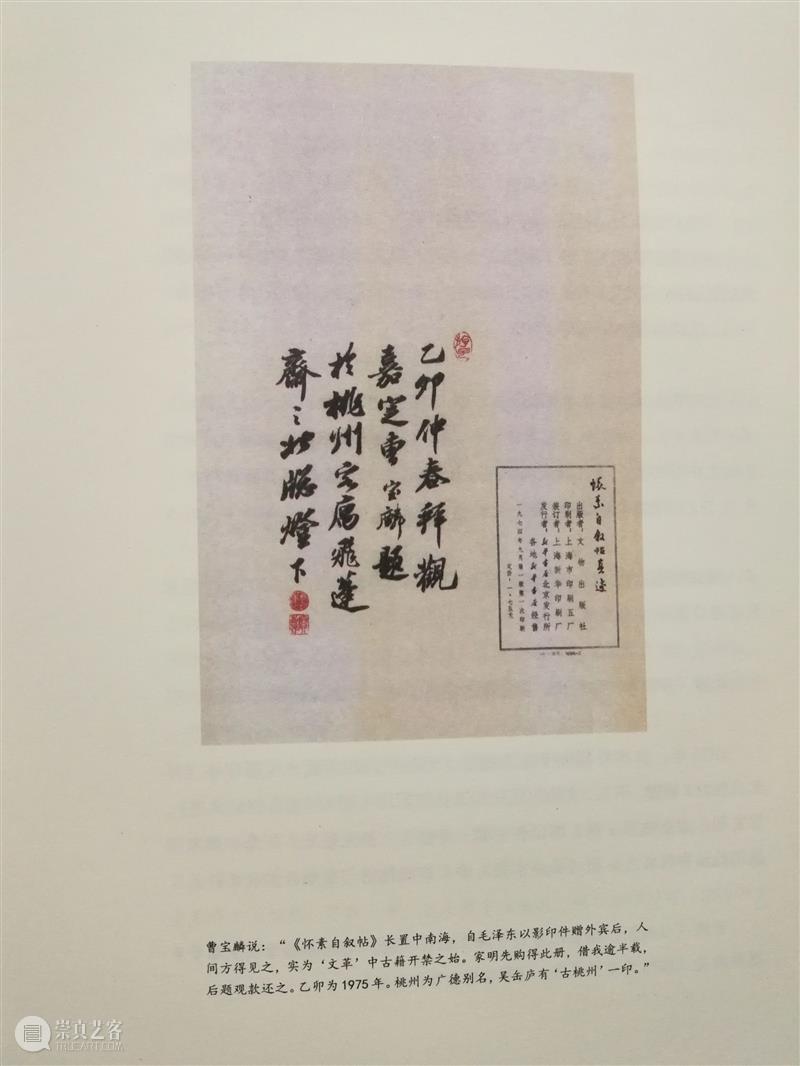 乙卯仲春拜觀
嘉定曹宝麟题
於桃州客寓飛蓬
齋之北牕燈下
懷素自敘帖真迹
出版者：文物出版社
印刷者：上海市印刷五厂
装订者：上海新华印刷厂
发行者：新华书店北京发行所
各地新华书店经售
一九七四年九月第一版第一次印刷
定价：一·七五元
曹宝麟说：“《怀素自叙帖》长置中南海，自毛泽东以影印件赠外宾后，人
间方得见之，实为‘文革’中古籍开禁之始。家明先购得此册，借我逾半载，
后题观款还之。乙卯为1975年。桃州为广德别名，吴缶庐有‘古桃州’一印。”
崇真艺客
www.TRUEART.com